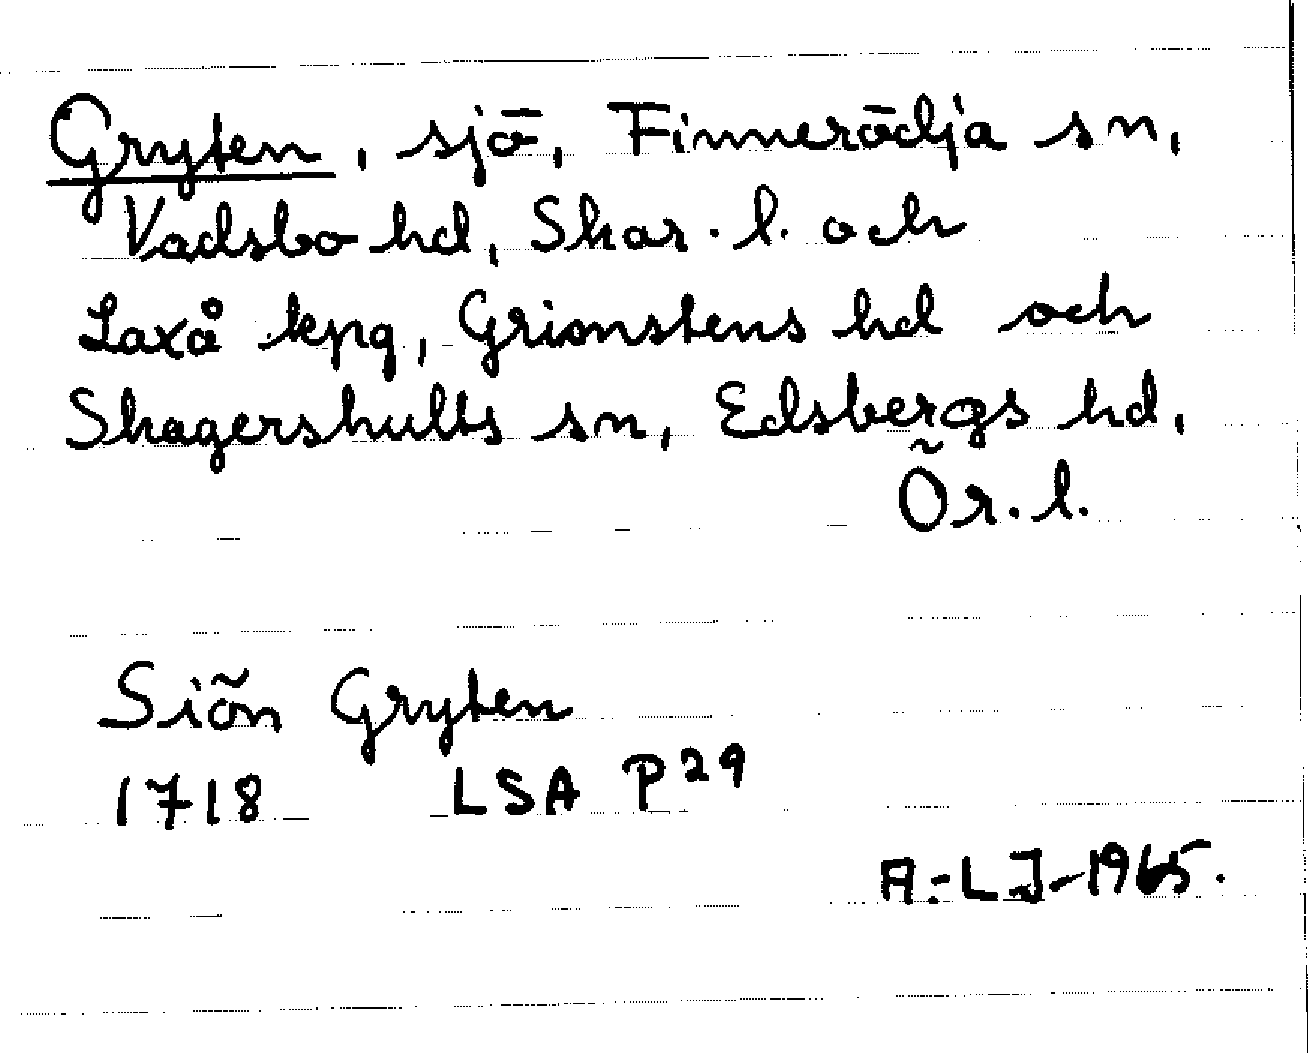 Gryten, sjö, Finnerödja sn,
Vadsbo hd, Skar. l. och
Laxå kpg, Grimstens hd och
Skagershults sn, Edsbergs hd,
Ör. l.
Siön Gryten
1718 LSA P29
A.-L J-1965.